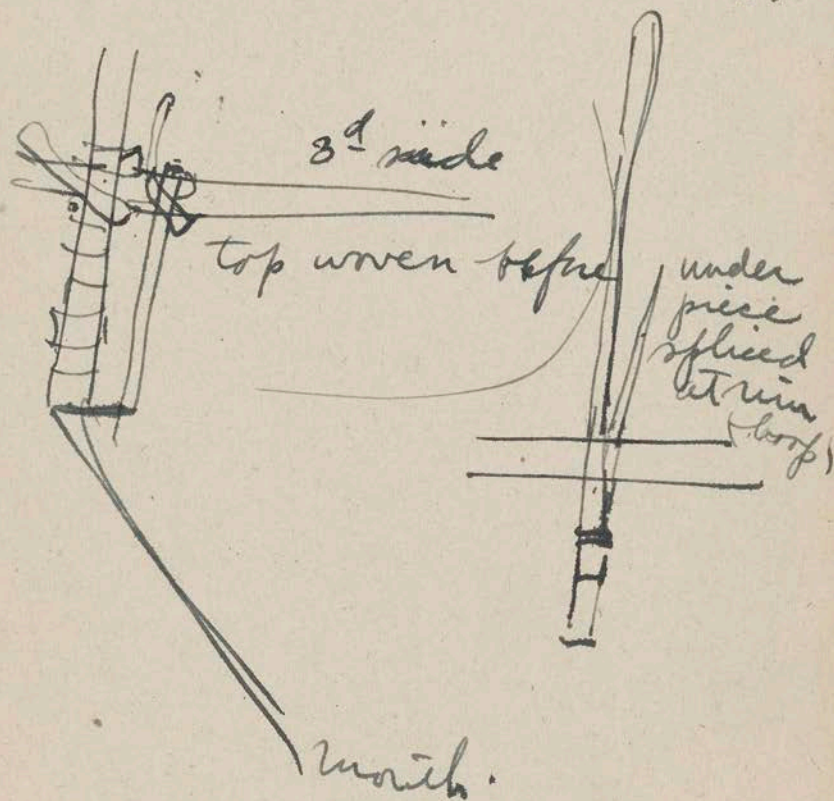 3d side
top woven before
under
piece
spliced
at rim
(hoop)
mouth.